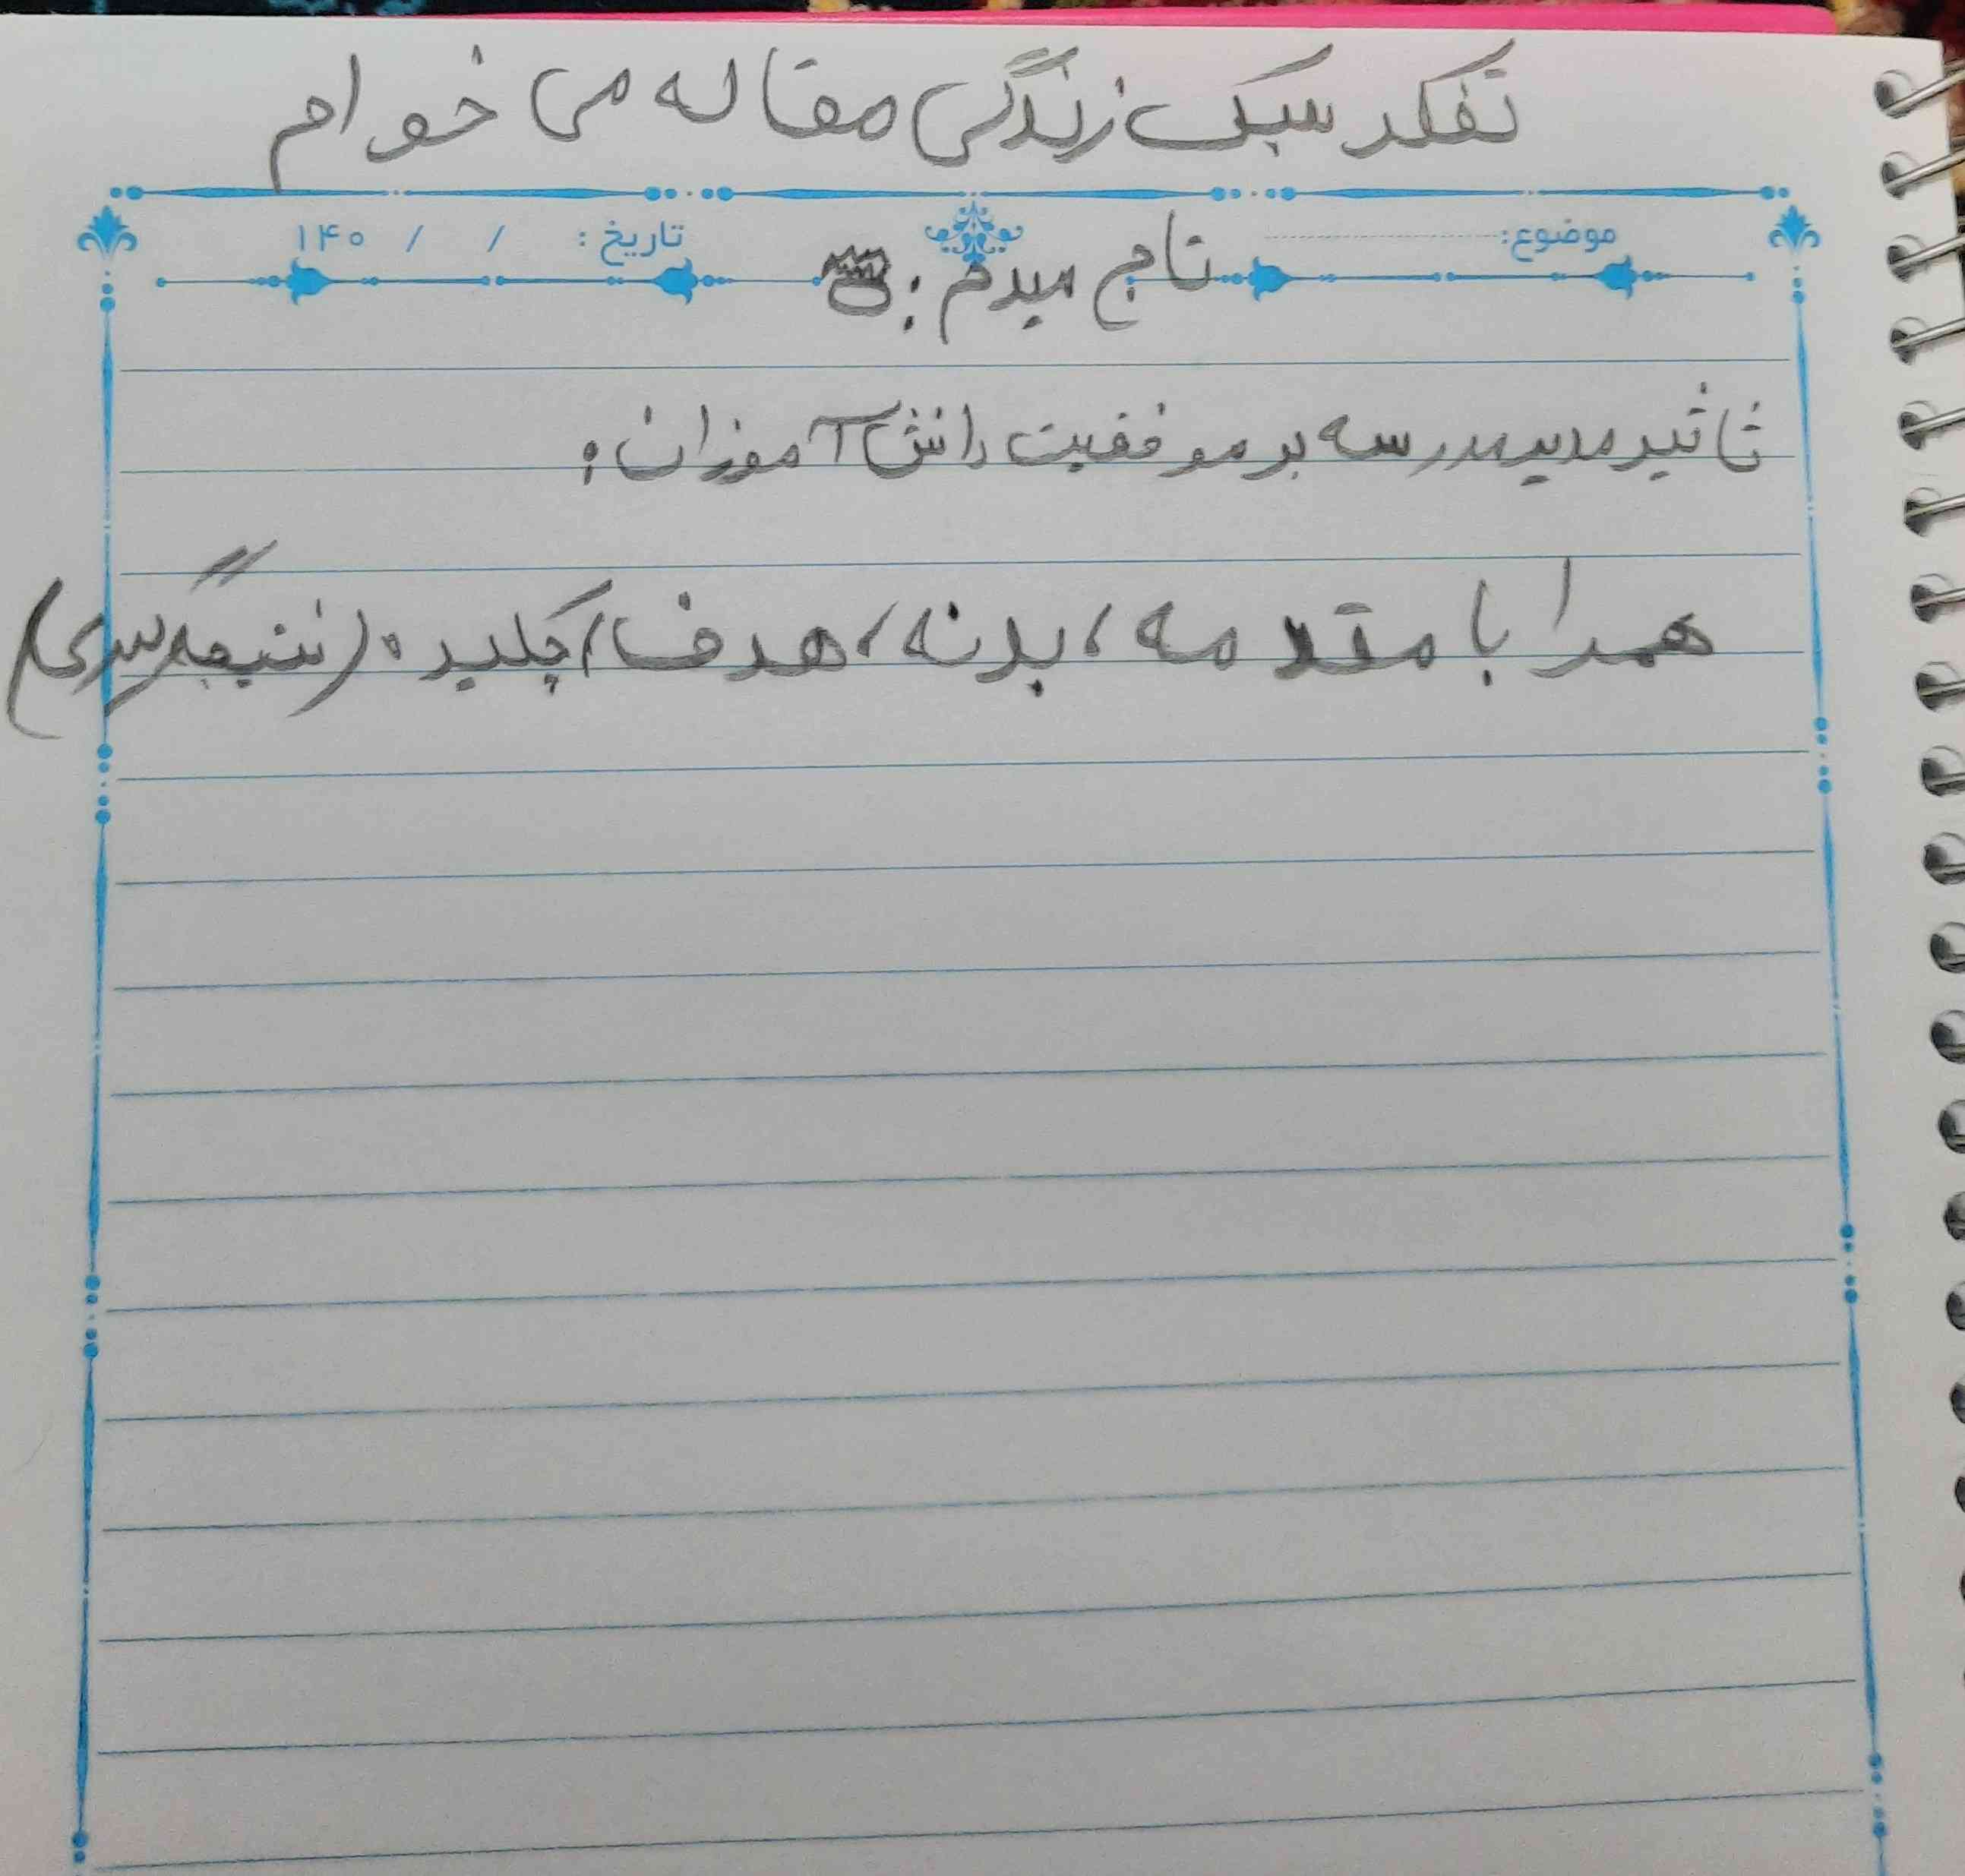 تفکر سبک زندگی مقاله می خوام
موضوع:
تاج میدم:
تاریخ: / / ۱۴۰
تاثیر مدیر مدرسه بر موفقیت دانش آموزان:
همرا با مقدمه، بدنه، هدف، چکیده (نتیجه گیری)